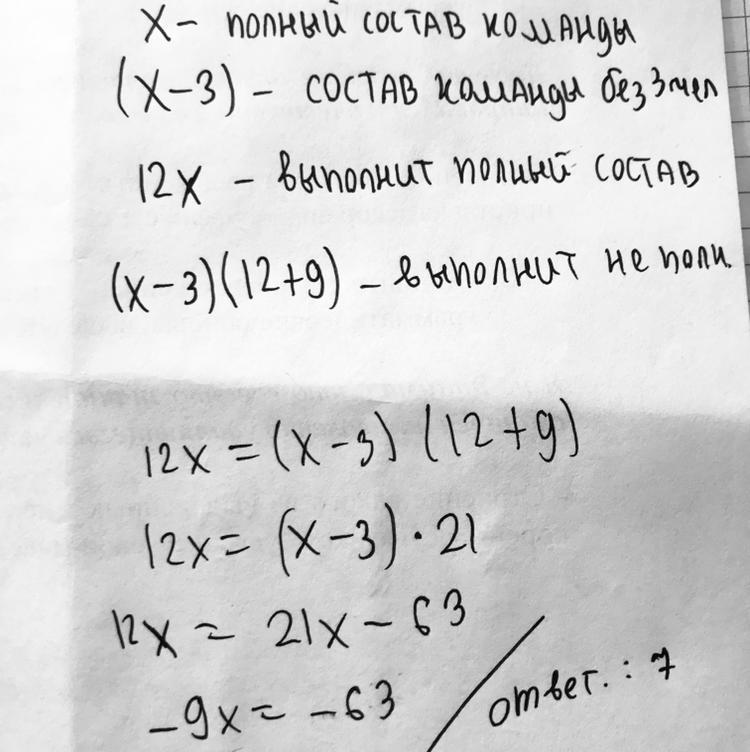 x – полный состав команды
(x-3) – состав команды без 3 чел
12x – выполнит полный состав
(x-3)(12+9) – выполнит не полн.
12x = (x-3) (12+9)
12x = (x-3) · 21
12x = 21x - 63
-9x = -63
ответ. : 7